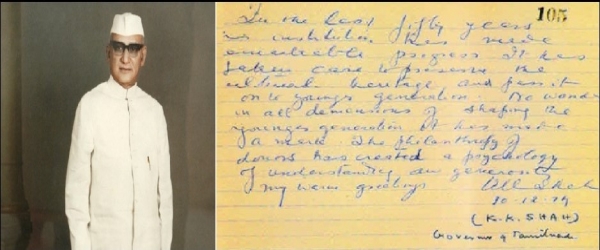 105
In the last fifty years
institution has made
remarkable progress. It has
taken care to preserve the
cultural heritage and pass it
on to younger generation. No wonder
in all dimensions of shaping the
younger generation it has made
a mark. The philanthropy of
donors has created a psychology
of understanding and generosity
my warm greetings
Shah
10-12-74
(K.K. SHAH)
Governor of Tamilnadu